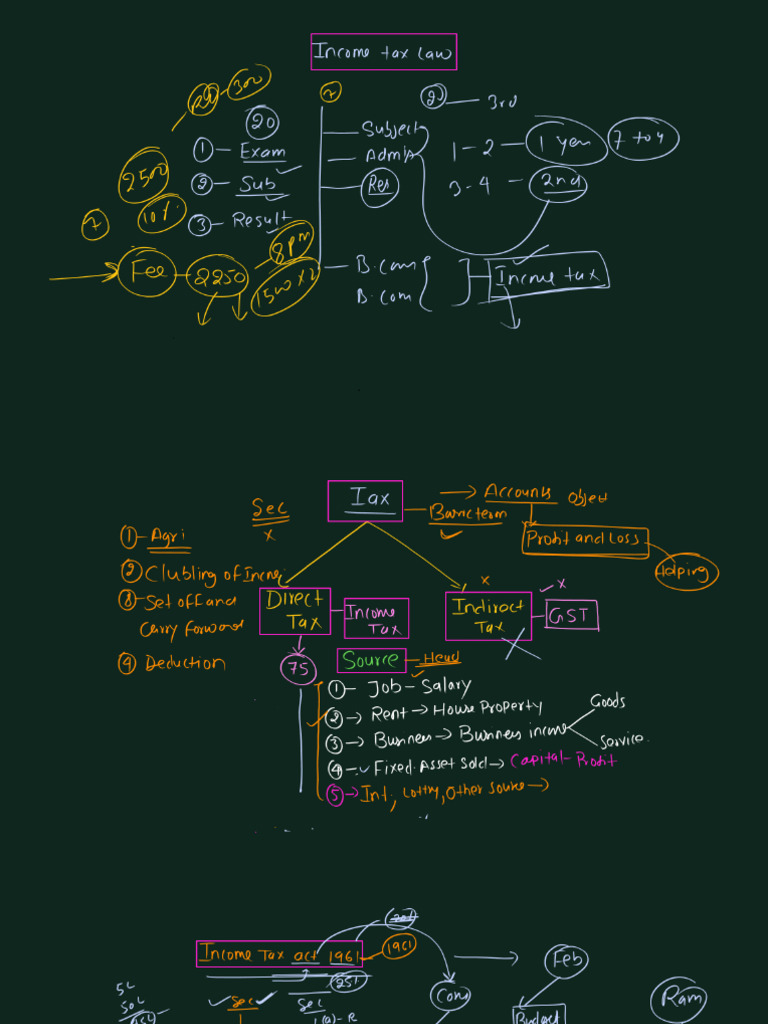 Income tax law
300
7
2 — 3rd
20
Subject
1 — Exam
Admis
1 - 2 — 1 year 7 to 4
2500
2 — Sub
Res
3 - 4 — 2nd
10%
7
3 — Result
8 pm
Fee — 2250
B.com
Income tax
B.com
Tax
Accounts
Object
Sec
x
Profit and Loss
Helping
1 — Agri
2 Clubling of Income
8 — Set off and
Carry forward
4 Deduction
Direct
Tax
Income
Tax
Indirect
Tax
GST
x
x
75
Source — Head
1 — Job - Salary
2 → Rent → House Property
Goods
3 → Business → Business income
Service.
4 - Fixed. Asset sold → Capital - Profit
5 → Int, Lottry, Other source →
Income Tax act 1961
1961
Feb
Cong
Ram
Sec
Sec
1
Budget